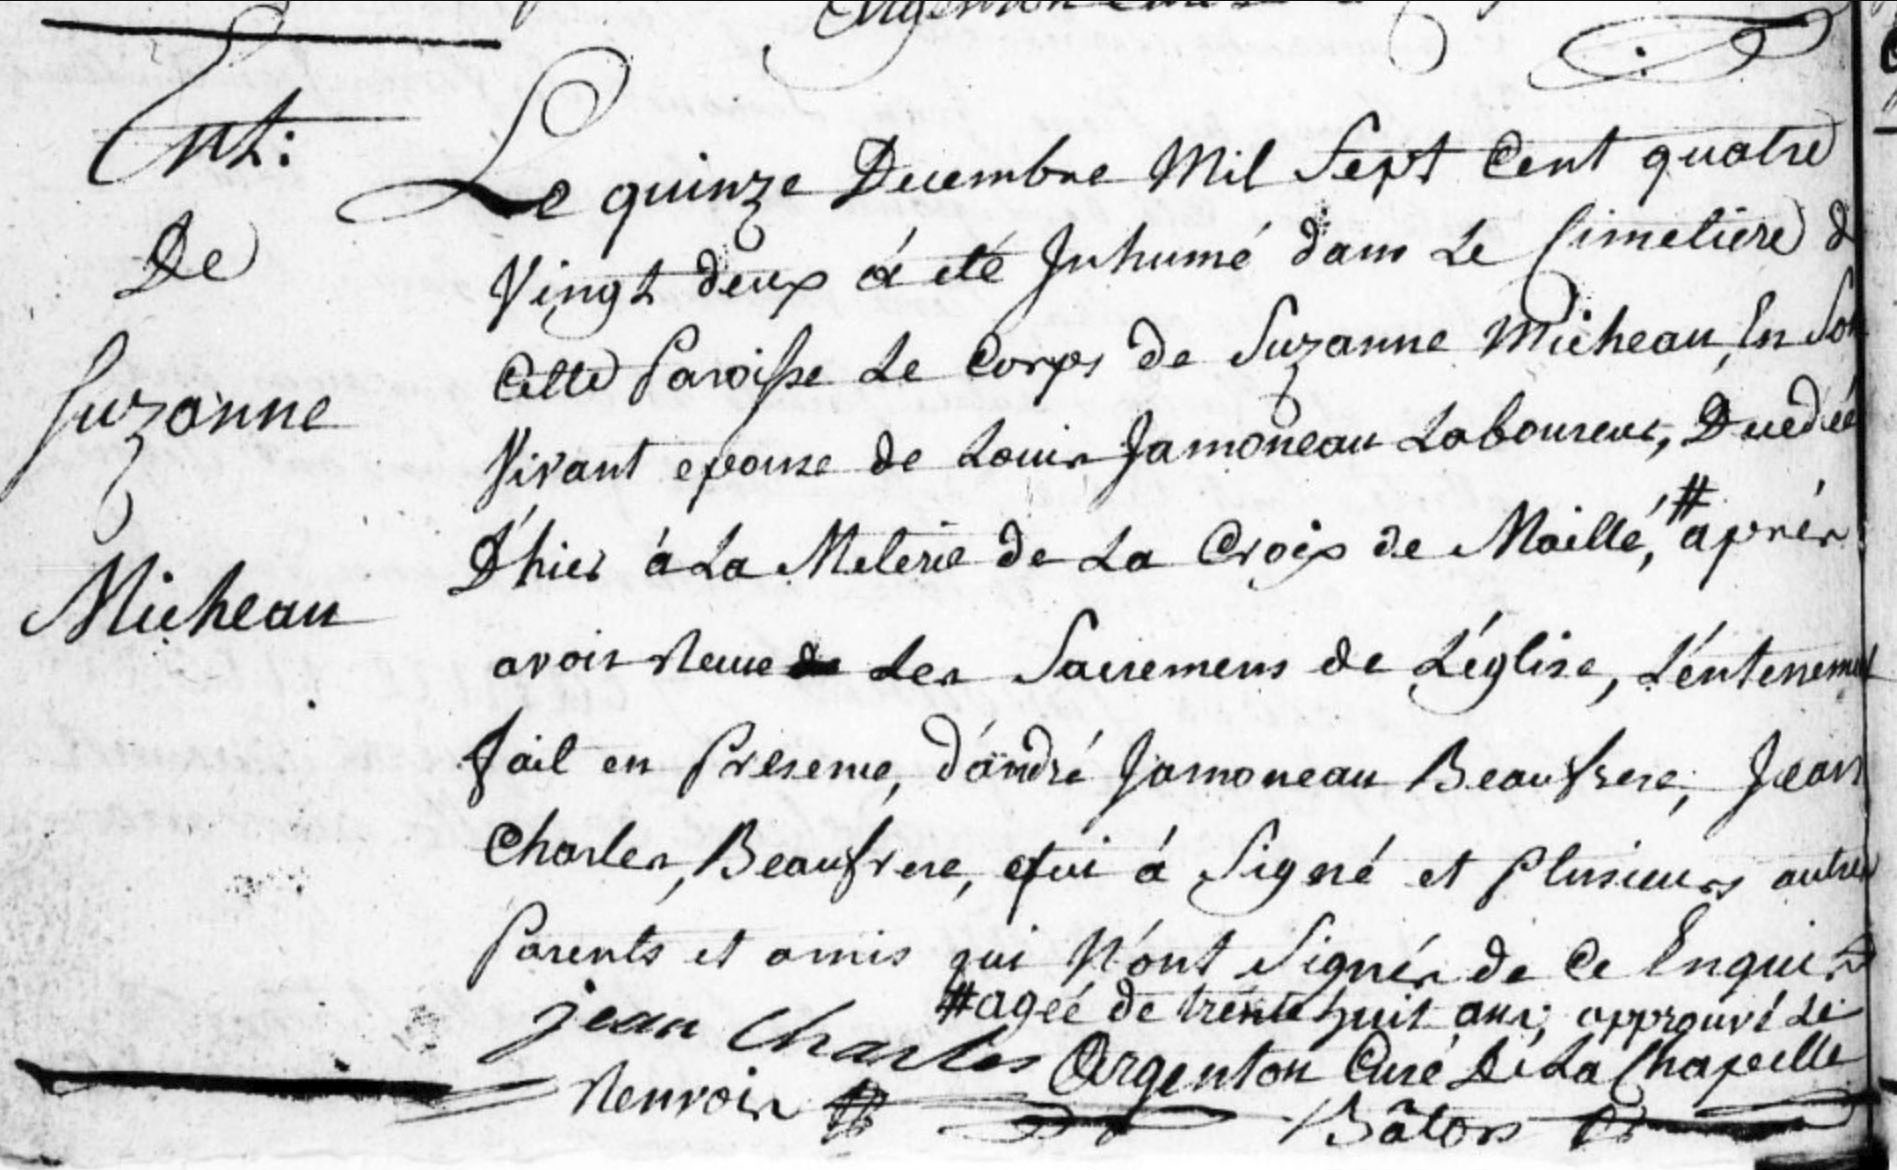 Ent:
De
Suzanne
Micheau
Le quinze Decembre Mil Sept Cent quatre
Vingt deux à eté Inhumé dans Le Cimetiere d
Cette Paroisse Le Corps de Suzanne Micheau, En Son
Vivant epouse de Louis Jamoneau Laboureur, Decedeé
D'hier à La Meterie de La Croix de Maillé, # aprés
avoir Receue Les Sacremens de L'église, L'énterrement
fait en Presence, d'andré Jamoneau Beaufrere, Jean
Charles, Beaufrere, qui à Signé et Plusieurs autres
Parents et amis qui N'ont Signés de Ce Enquis
# ageé de trente huit ans; approuvé Le
jean Charles Argenton Curé De La Chapelle
Renvois # Bâton